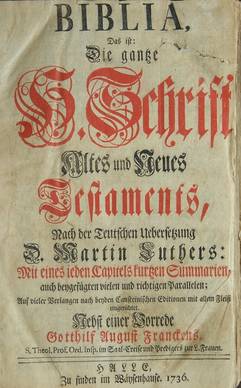 BIBLIA,
Das ist:
Die gantze
H. Schrift
Altes und Neues
Testaments,
Nach der Teutschen Uebersetzung
D. Martin Luthers:
Mit eines ieden Capitels kurtzen Summarien,
auch beygefügten vielen und richtigen Parallelen;
Auf vieler Verlangen nach beyden Cansteinischen Editionen mit allen Fleiß
eingerichtet.
Nebst einer Vorrede
Gotthilf August Franckens.
S. Theol. Prof. Ord. Insp. im Saal-Creise und Predigers zur L. Frauen.
HALLE,
Zu finden im Wäysenhause. 1736.